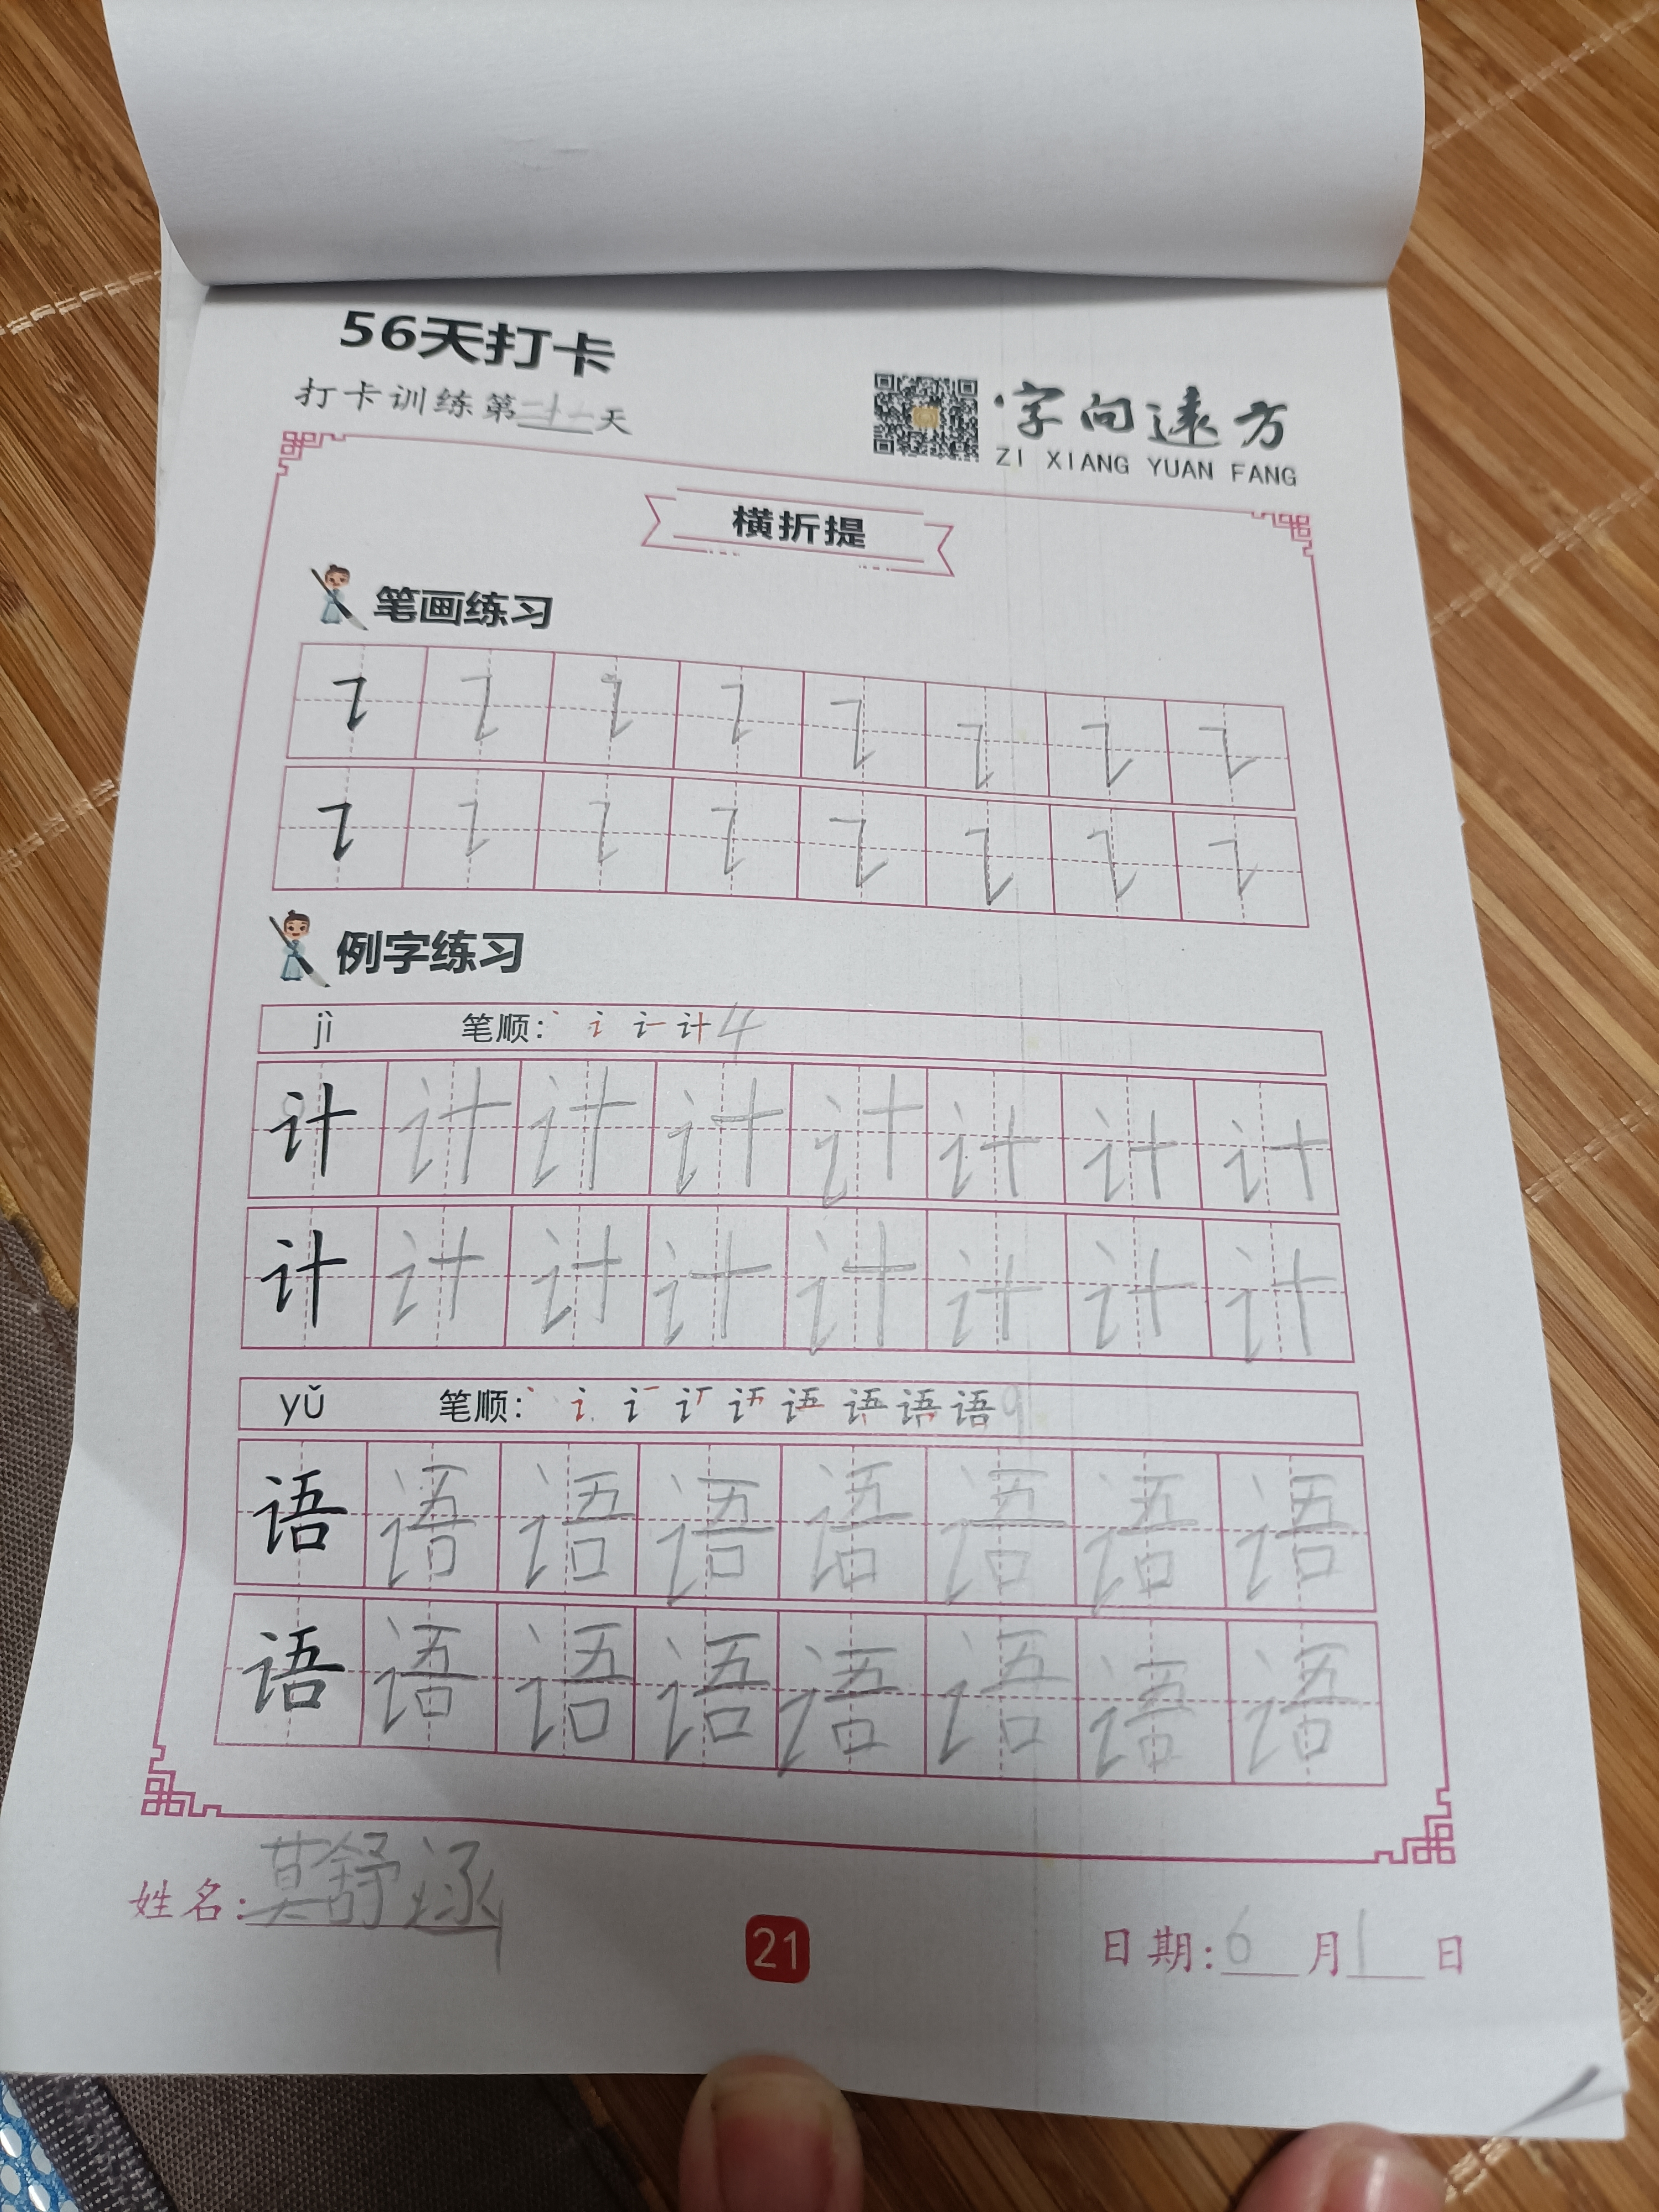 56天打卡
打卡训练第二十一天
字向远方
ZI XIANG YUAN FANG
横折提
笔画练习
例字练习
jì 笔顺: 计 4
计 计 计 计 计 计 计 计
计 计 计 计 计 计 计 计
yǔ 笔顺: 语 9
语 语 语 语 语 语 语 语
语 语 语 语 语 语 语 语
姓名:莫舒涵
21
日期:6月1日